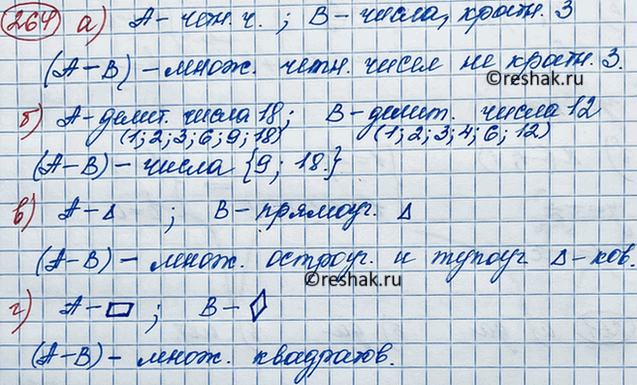 264 а) А – четн. ч. ; В – числа, кратн. 3
(А – В) – множ. четн. чисел не кратн. 3.
©reshak.ru
б) А – делит. числа 18; В – делит. числа 12
(1; 2; 3; 6; 9; 18) (1; 2; 3; 4; 6; 12)
(А – В) – числа {9; 18.}
в) А – Δ ; В – прямоуг. Δ
(А – В) – множ. остроуг. и тупоуг Δ – ков.
©reshak.ru
г) А – ▭ ; В – ◊
(А – В) – множ. квадратов.